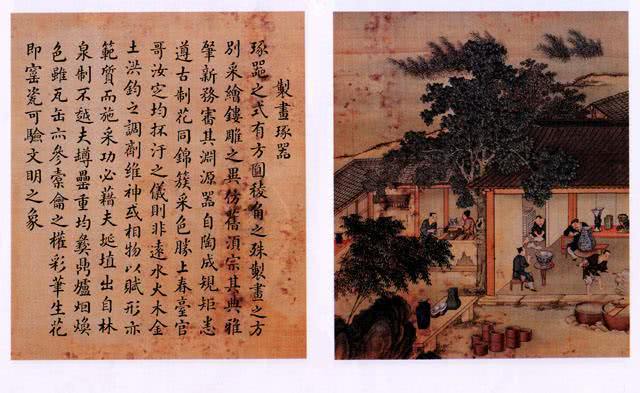 製畫琢器
琢器之式有方圓稜角之殊製畫之方
別采繪鏤雕之異仿舊須宗其典雅
肇新務審其淵源器自陶成規矩悉
遵古制花同錦簇采色勝上春臺官
哥汝定均抔汙之儀則非遠水火木金
土洪鈞之調劑維神或相物以賦形亦
範質而施采功必藉夫埏埴出自林
泉制不越夫罇罍重均彝鼎爐烟煥
色雖瓦缶亦參橐籥之權彩筆生花
即窰瓷可驗文明之象